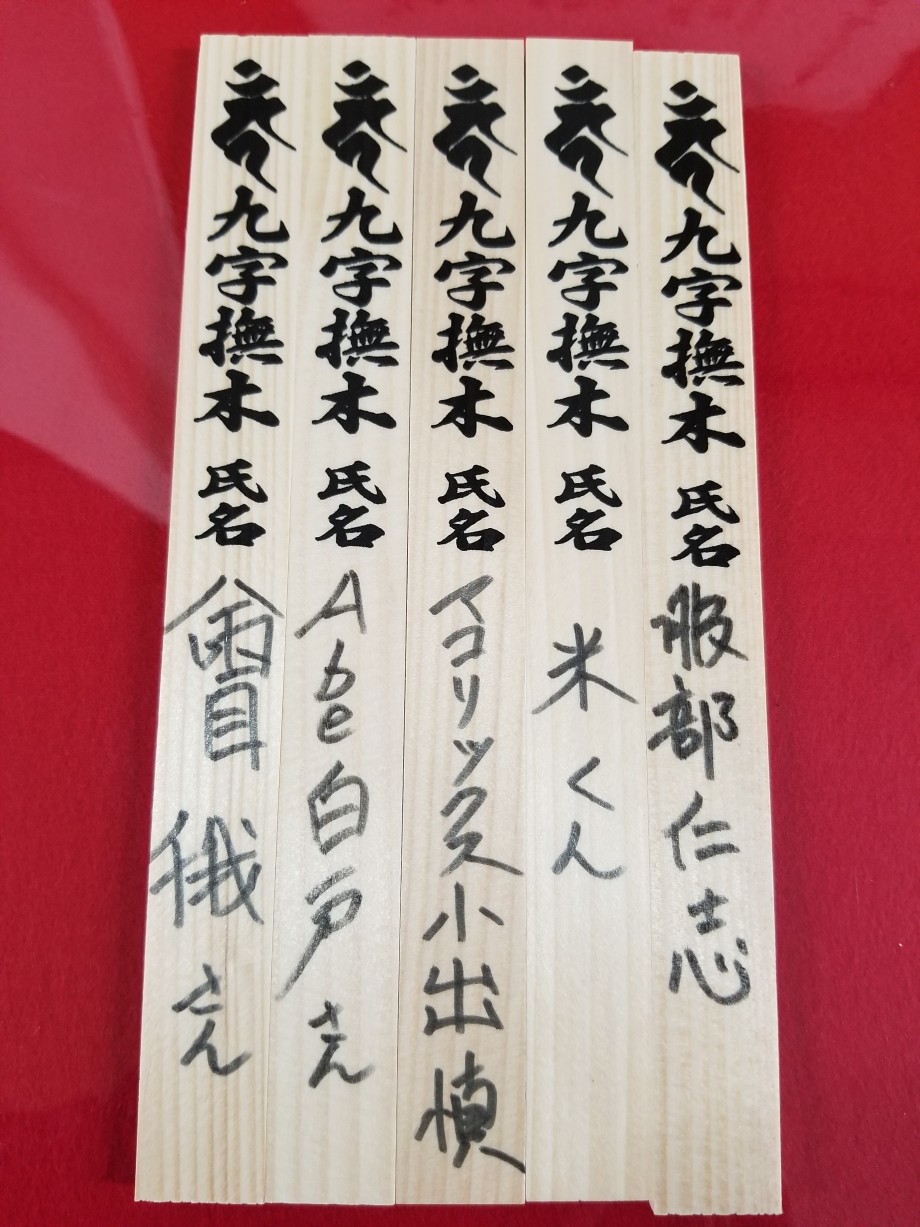 九字撫木 氏名 服部仁志
九字撫木 氏名 米くん
九字撫木 氏名 マコリックス小出慎
九字撫木 氏名 Abe白戸さん
九字撫木 氏名 俄さん